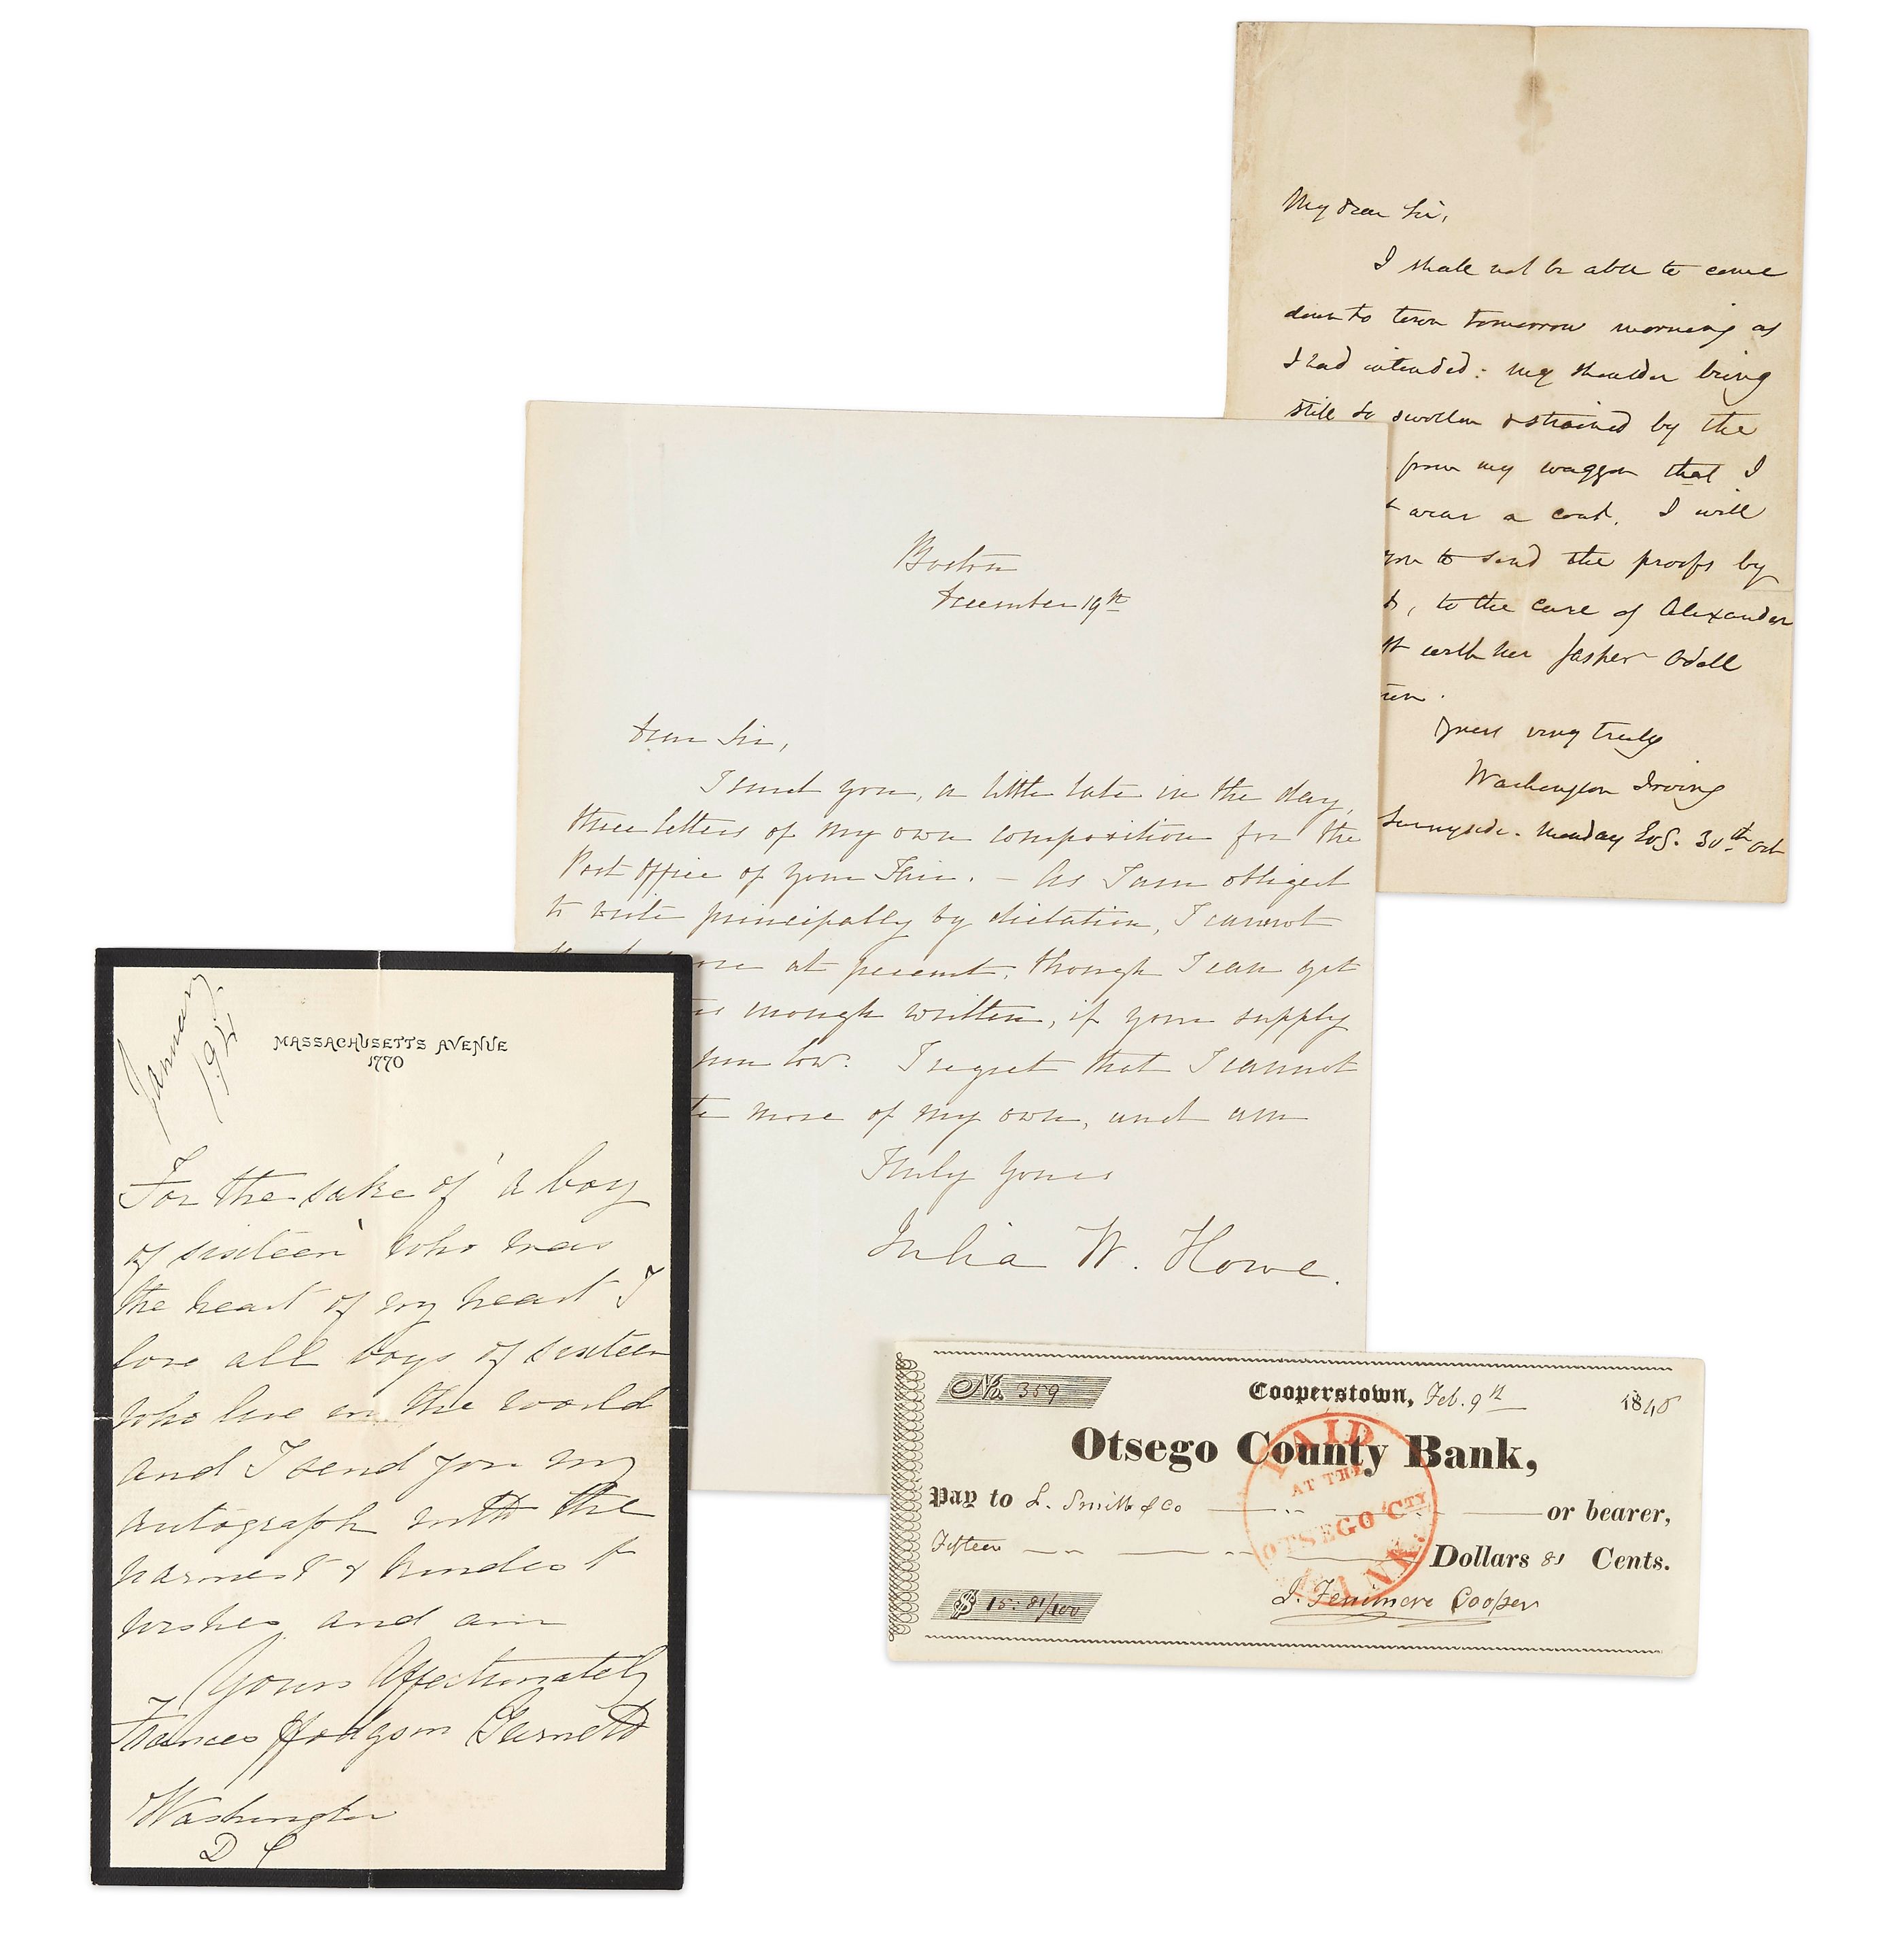 My dear Sir,
I shall not be able to come
down to town tomorrow morning as
I had intended: my shoulder being
still so swollen & strained by the
from my waggon that I
wear a coat. I will
you to send the proofs by
, to the care of Alexander
Jasper Odell
Yours very truly
Washington Irving
Sunnyside. Monday Evg. 30th Oct
Boston
December 19th
Dear Sir,
I send you, a little late in the day,
three letters of my own composition for the
Post Office of your Fair. – As I am obliged
to write principally by dictation, I cannot
at present, though I can get
enough written, if your supply
low. I regret that I cannot
more of my own, and am
Truly yours
Julia W. Howe.
January
MASSACHUSETTS AVENUE
1770
For the sake of 'a boy
of sixteen' who was
the heart of my heart I
love all boys of sixteen
who live in the world
and I send you my
autograph with the
warmest & kindest
wishes and am
Yours Affectionately
Frances Hodgson Burnett
Washington
D C
No. 359
Cooperstown, Feb. 9th 184
Otsego County Bank,
Pay to L. Smith & Co or bearer,
Fifteen Dollars 81 Cents.
$ 15: 81/100
J. Fenimore Cooper
PAID
AT THE
OTSEGO CTY
BANK.